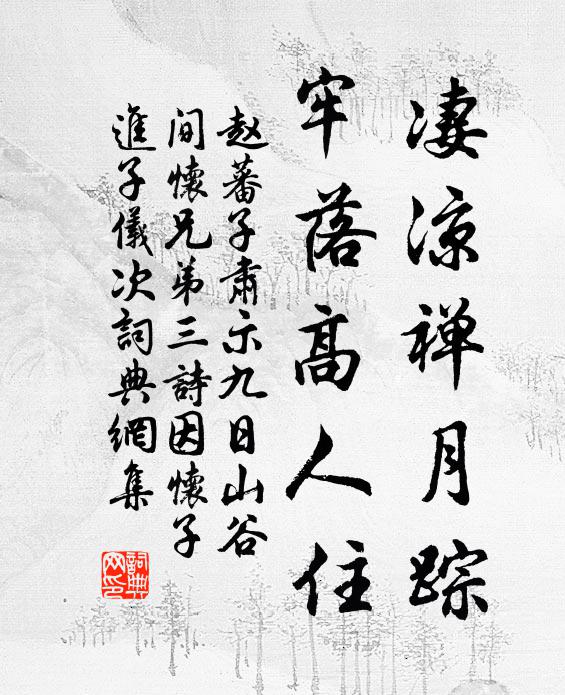 凄凉禅月踪
牢落高人住
赵蕃子肃示九日山谷
间懷兄弟三詩因懷子
進子儀次詞典網集
詞典網印